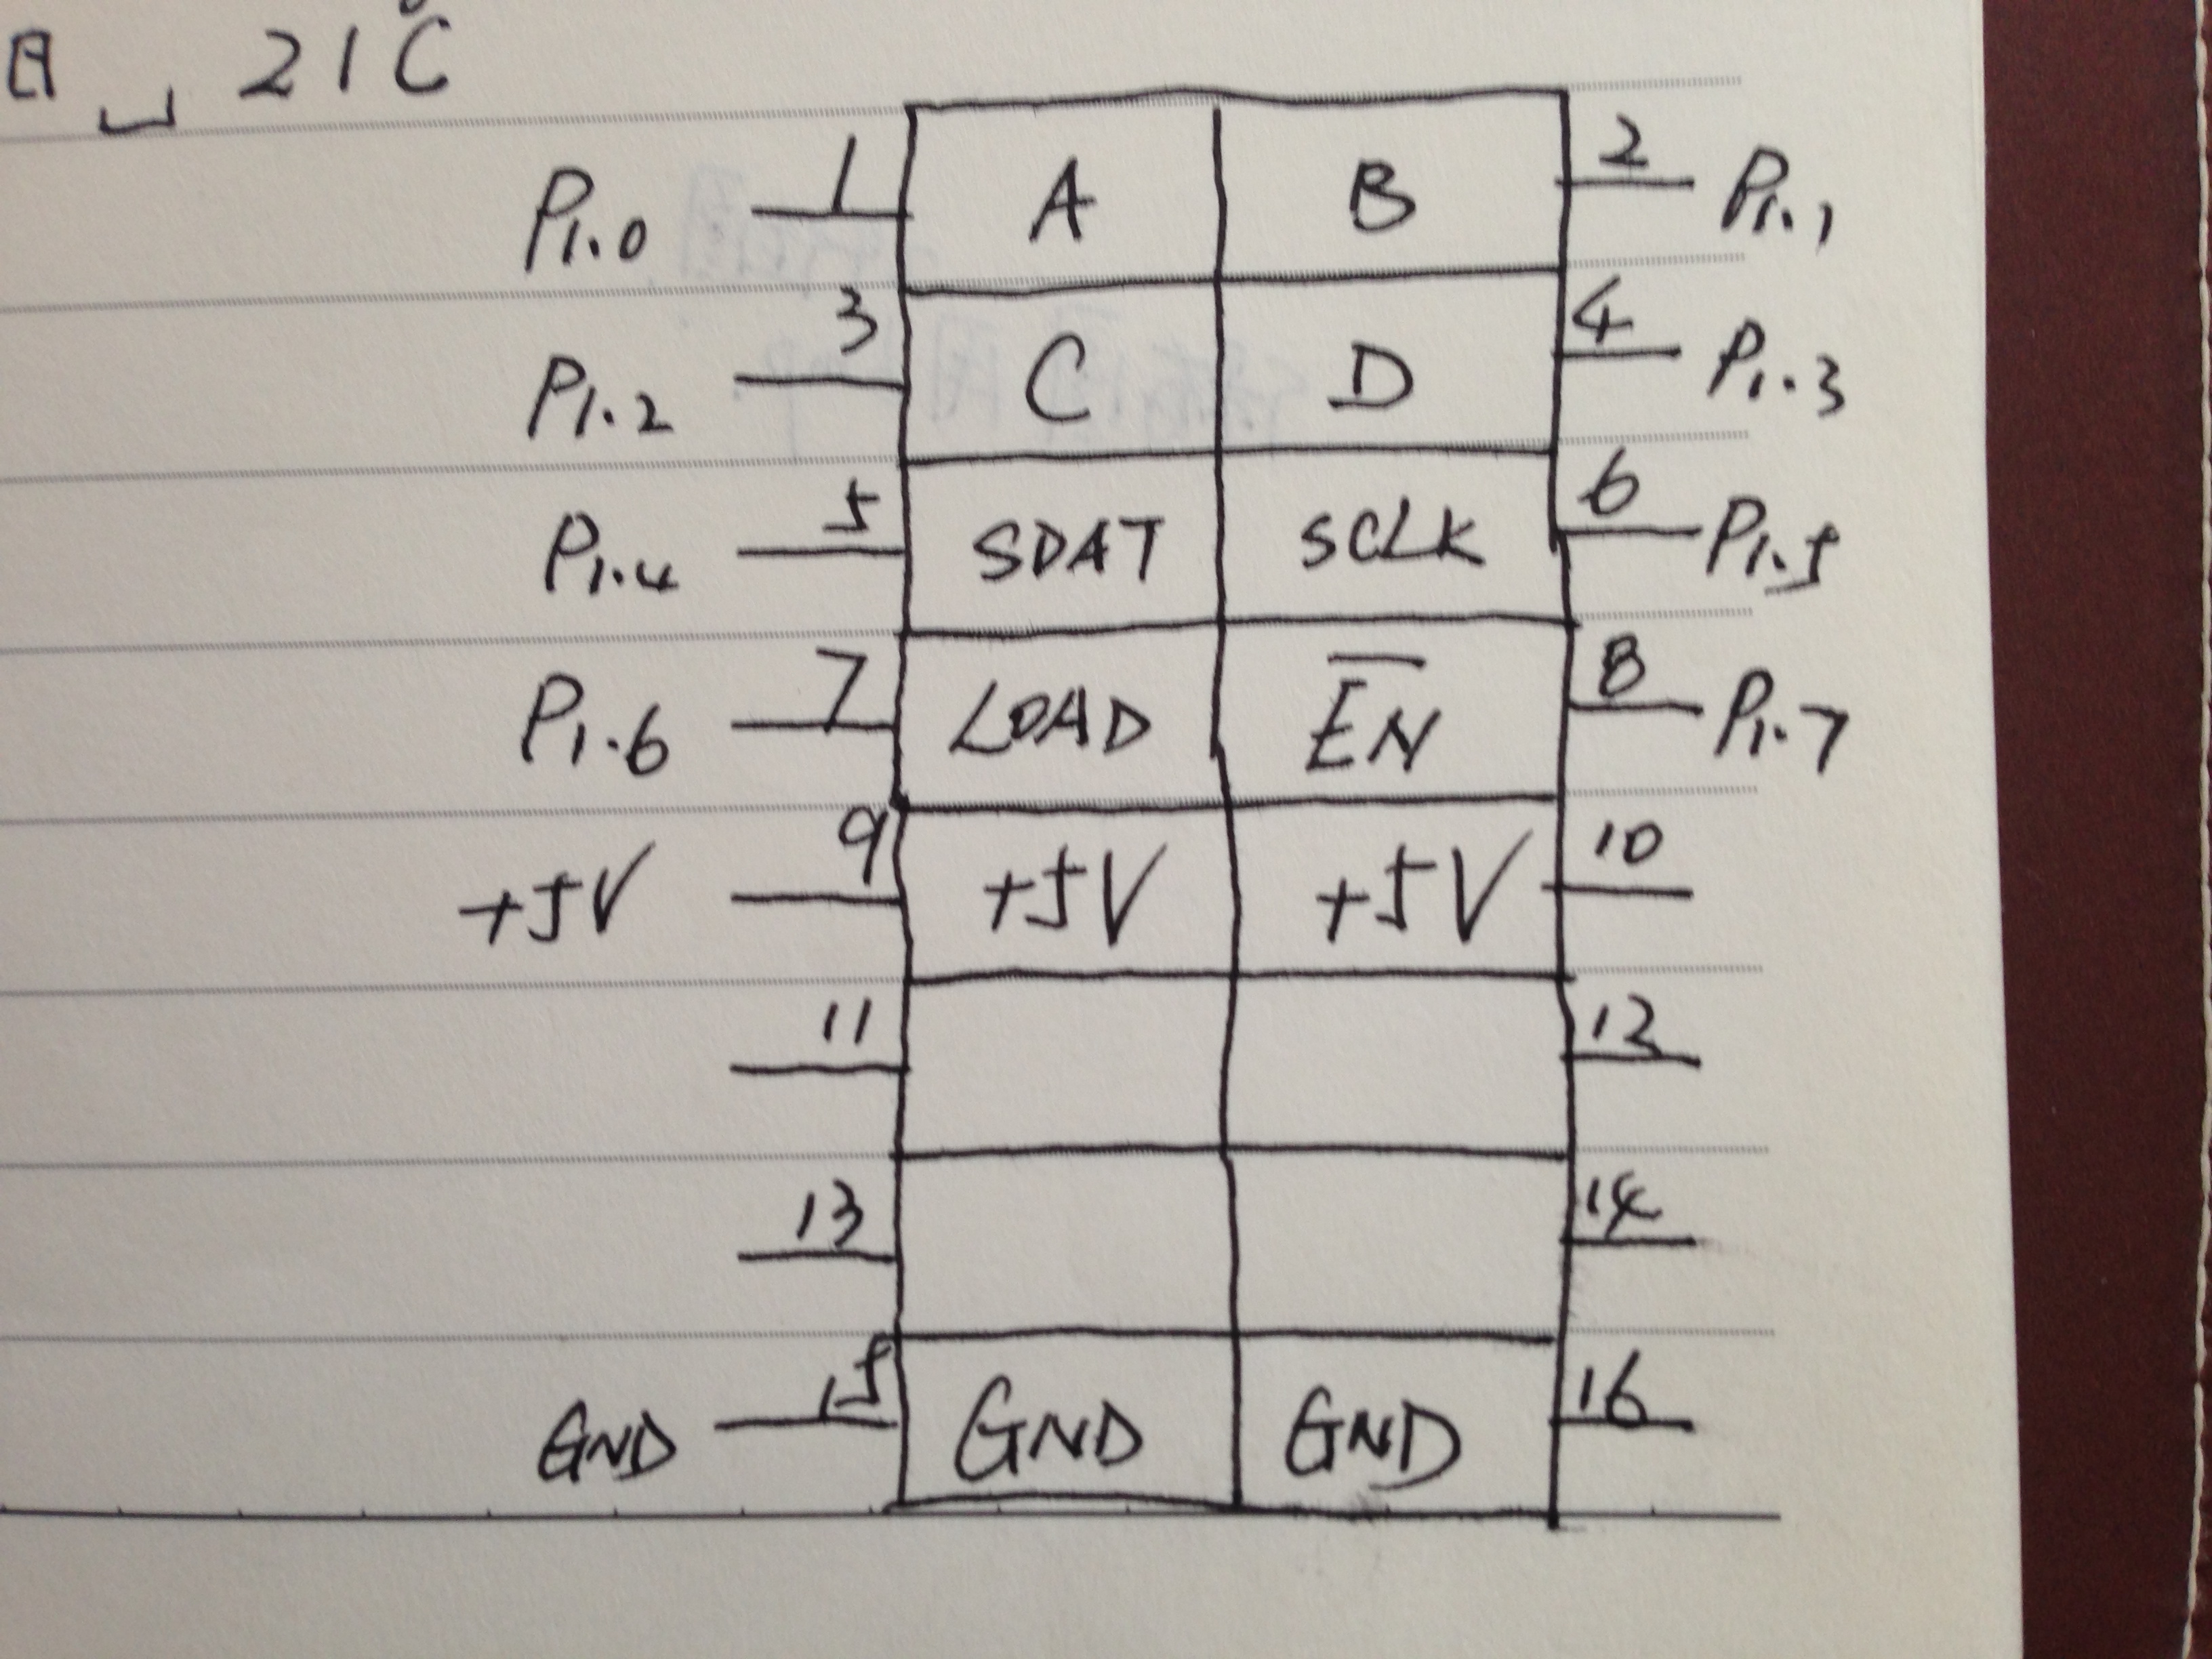 日 21°C
P1.0 1 A B 2 P1.1
P1.2 3 C D 4 P1.3
P1.4 5 SDAT SCLK 6 P1.5
P1.6 7 LOAD E̅N̅ 8 P1.7
+5V 9 +5V +5V 10
11 12
13 14
GND 15 GND GND 16